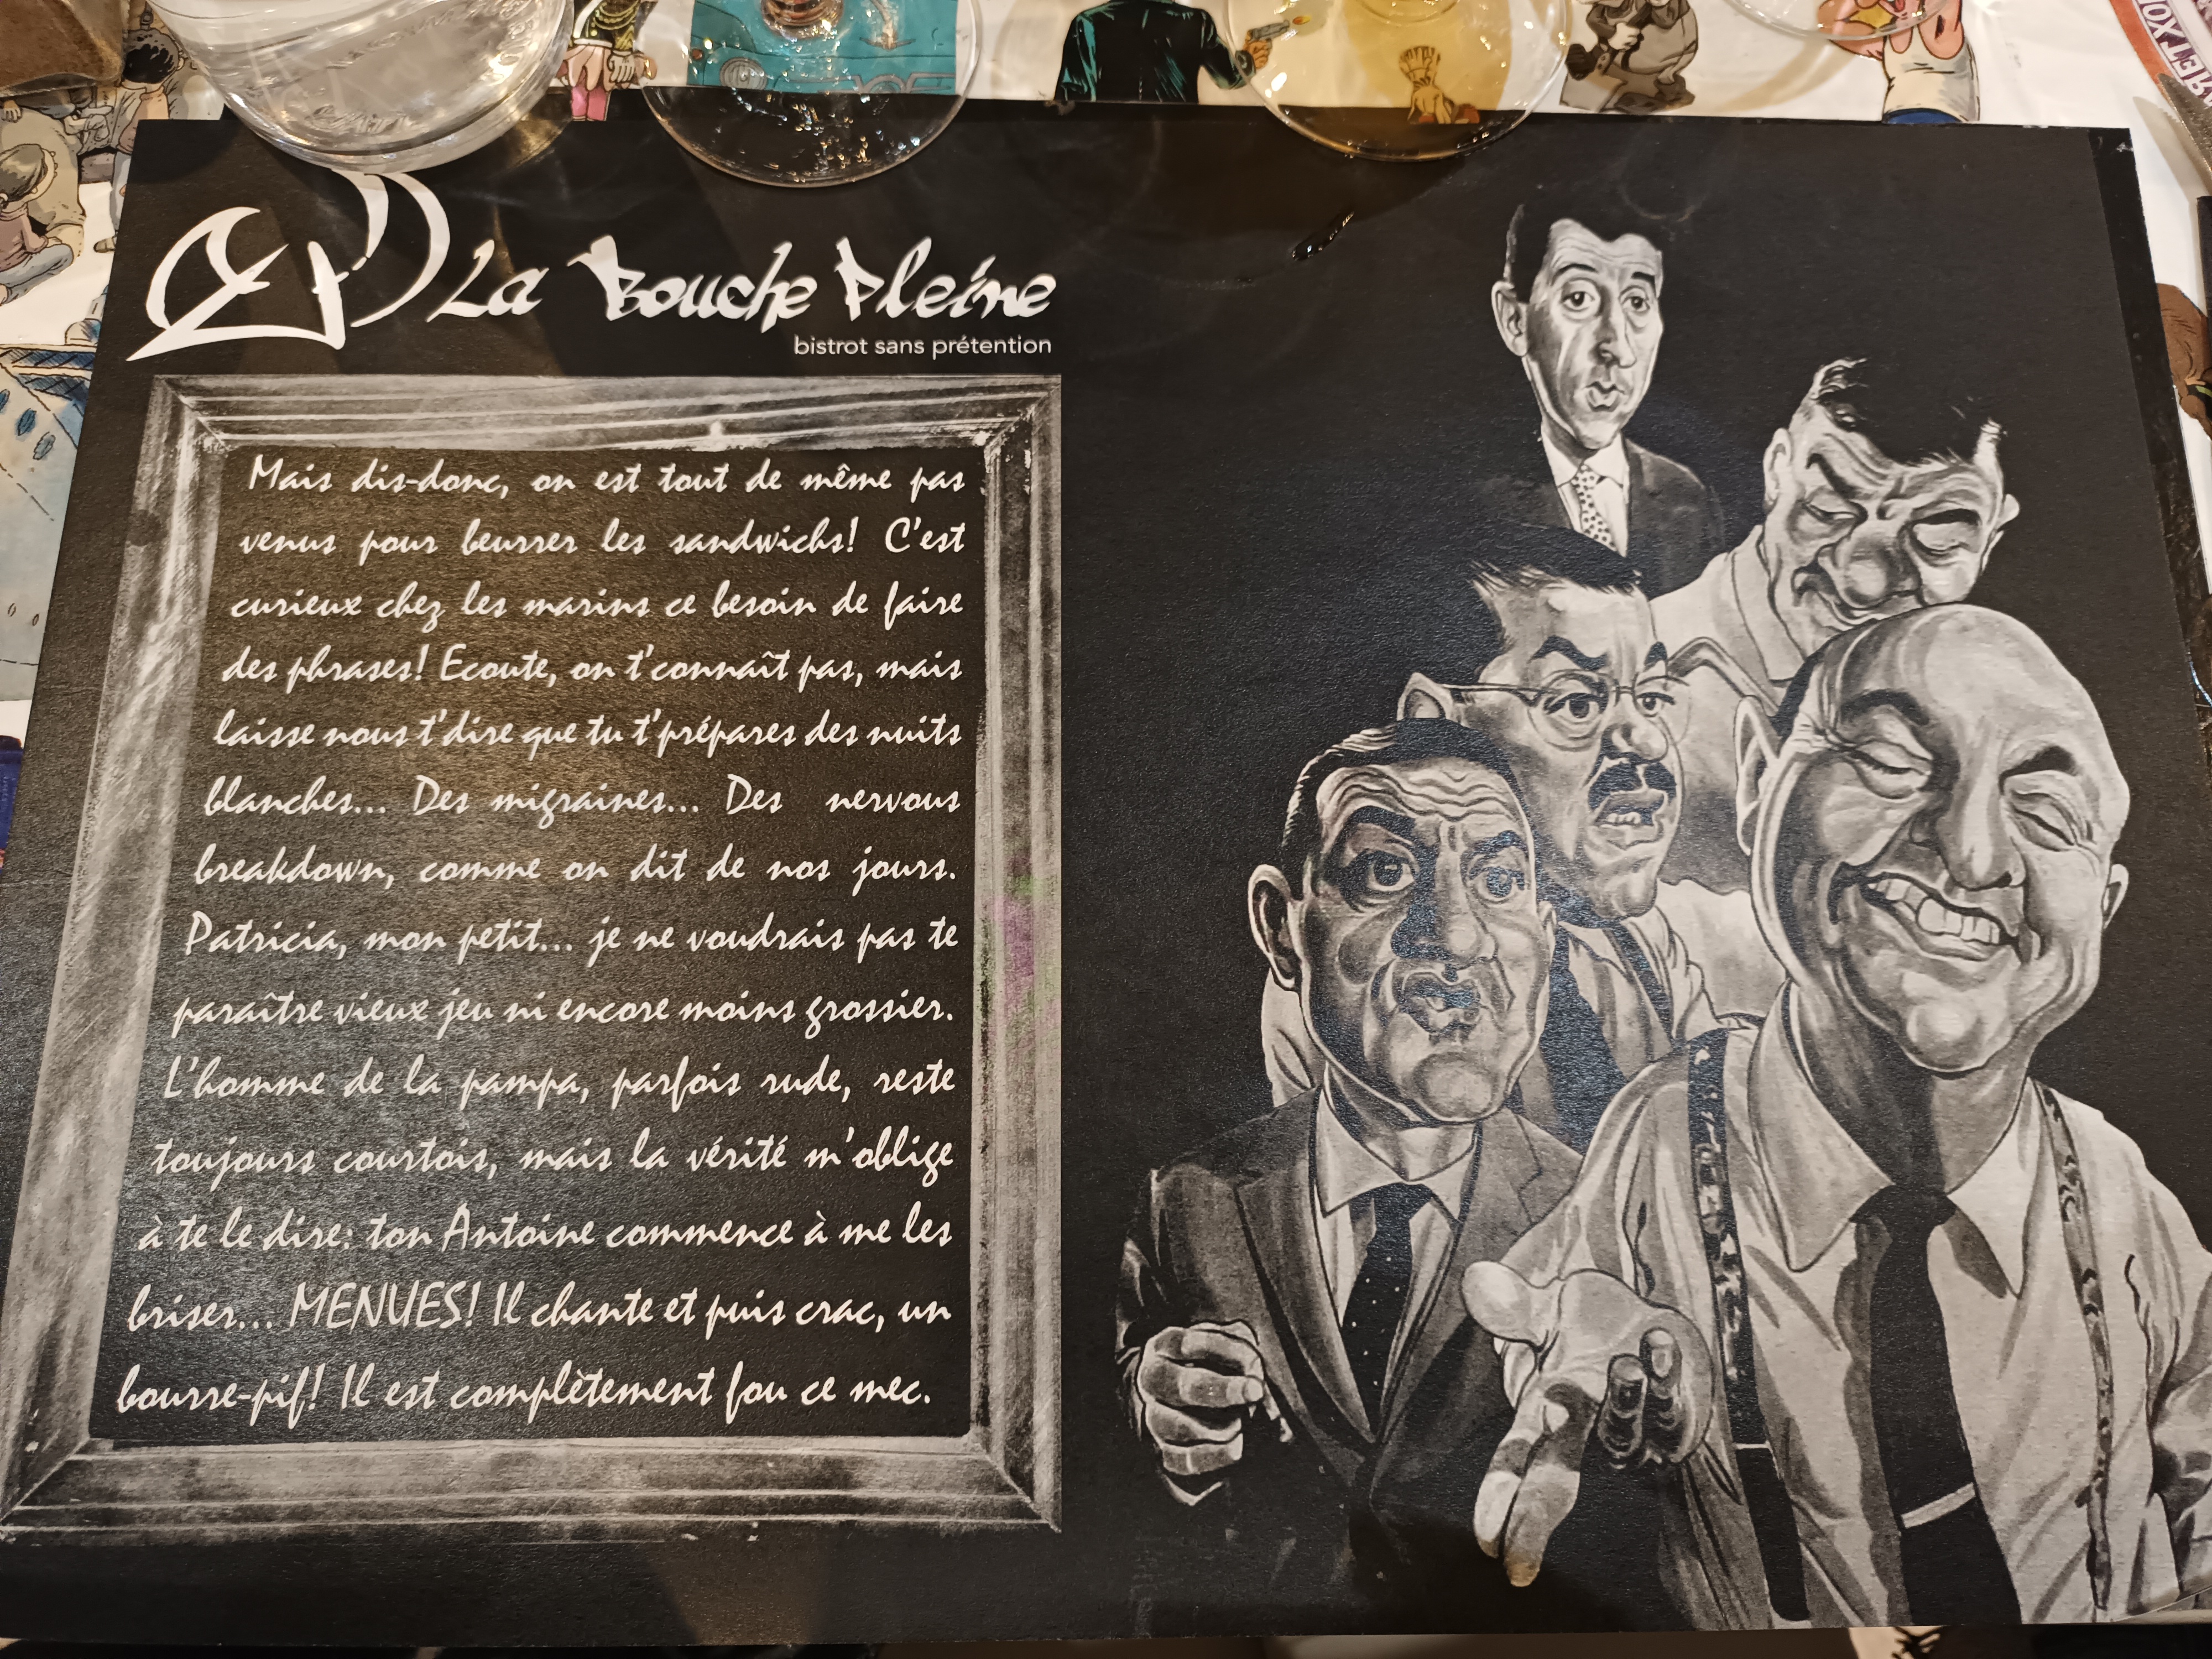 La Bouche Pleine
bistrot sans prétention
Mais dis-donc, on est tout de même pas
venus pour beurrer les sandwichs! C'est
curieux chez les marins ce besoin de faire
des phrases! Ecoute, on t'connaît pas, mais
laisse nous t'dire que tu t'prépares des nuits
blanches... Des migraines... Des nervous
breakdown, comme on dit de nos jours.
Patricia, mon petit... je ne voudrais pas te
paraître vieux jeu ni encore moins grossier.
L'homme de la pampa, parfois rude, reste
toujours courtois, mais la vérité m'oblige
à te le dire: ton Antoine commence à me les
briser... MENUES! Il chante et puis crac, un
bourre-pif! Il est complètement fou ce mec.